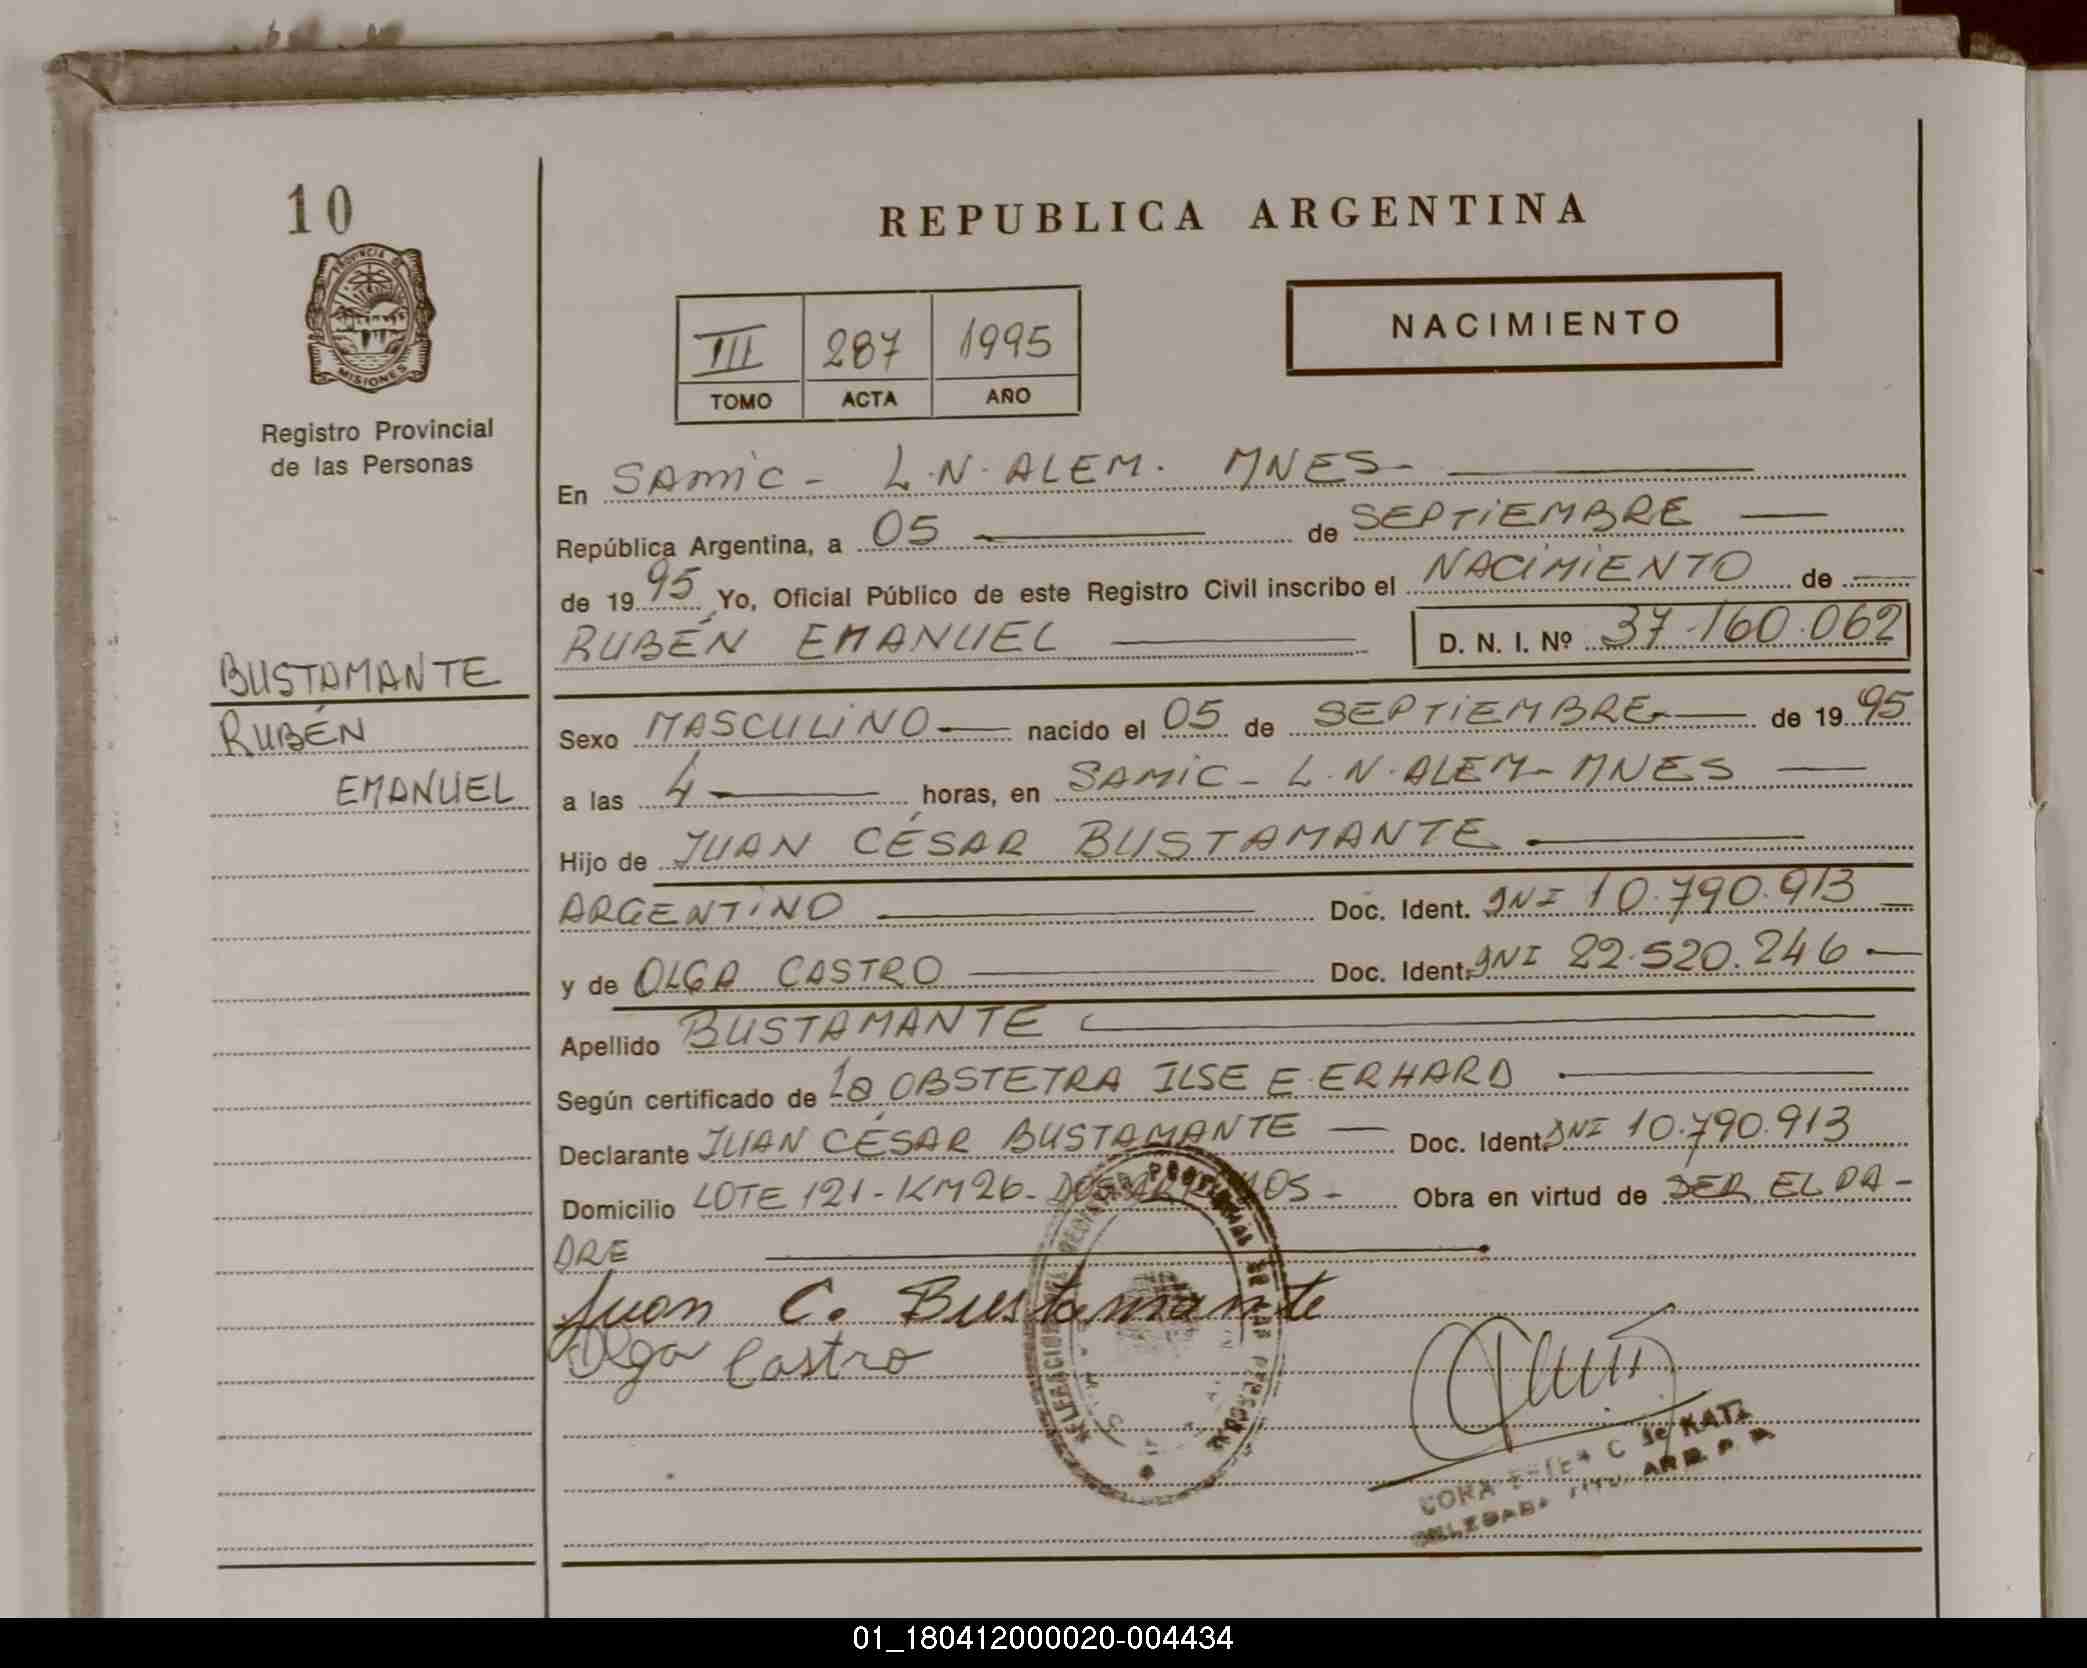 10
REPUBLICA ARGENTINA
PROVINCIA DE
MISIONES
NACIMIENTO
III 287 1995
TOMO ACTA AÑO
Registro Provincial
de las Personas
En SAMIC - L.N. ALEM. MNES-
República Argentina, a 05 de SEPTIEMBRE
de 1995 Yo, Oficial Público de este Registro Civil inscribo el NACIMIENTO de
RUBÉN EMANUEL D. N. I. Nº 37.160.062
BUSTAMANTE
RUBÉN
EMANUEL
Sexo MASCULINO nacido el 05 de SEPTIEMBRE de 1995
a las 4 horas, en SAMIC - L.N. ALEM - MNES
Hijo de JUAN CÉSAR BUSTAMANTE
ARGENTINO Doc. Ident. DNI 10.790.913
y de OLGA CASTRO Doc. Ident. DNI 22.520.246
Apellido BUSTAMANTE
Según certificado de La OBSTETRA ILSE E. ERHARD
Declarante JUAN CÉSAR BUSTAMANTE Doc. Ident. DNI 10.790.913
Domicilio LOTE 121 - KM 26 - Obra en virtud de SER EL PA-
DRE
Juan C. Bustamante
Olga Castro
C de KATZ
01_180412000020-004434